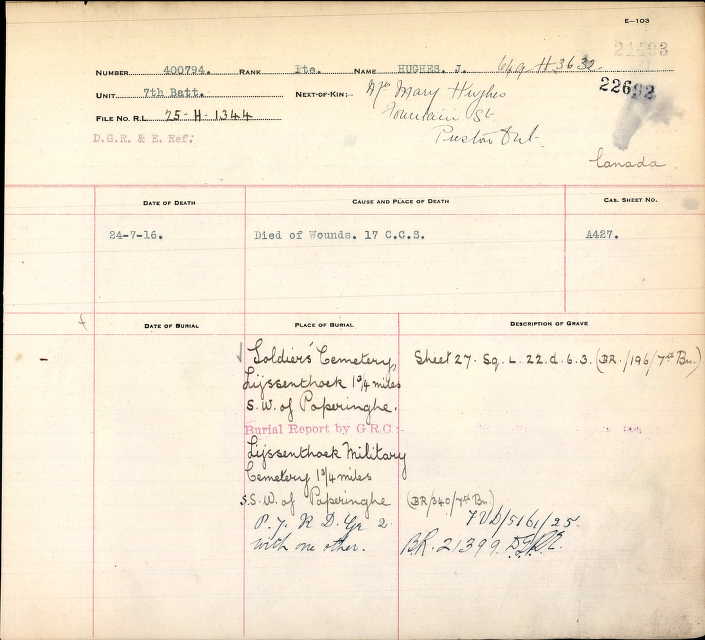 E-103
NUMBER 400794. RANK Pte. NAME HUGHES. J. 649-H-3632
22692
UNIT 7th Batt. NEXT-OF-KIN:- Mrs Mary Hughes
FILE NO. R.L. 25-H-1344 Fountain St.
D.G.R. & E. Ref: Preston Ont.
Canada
DATE OF DEATH CAUSE AND PLACE OF DEATH CAS. SHEET NO.
24-7-16. Died of Wounds. 17 C.C.S. A427.
DATE OF BURIAL PLACE OF BURIAL DESCRIPTION OF GRAVE
Soldiers' Cemetery, Sheet 27. Sq. L. 22. d. 6. 3. (BR./196/7th Bn.)
Lijssenthoek 1 3/4 miles
S.W. of Poperinghe.
Burial Report by G.R.C:-
Lijssenthoek Military
Cemetery 1 3/4 miles
S.S.W. of Poperinghe (BR/340/7th Bn)
P. 7. R D. Gr 2 7VD/5161/25.
with one other. B.R. 21399.